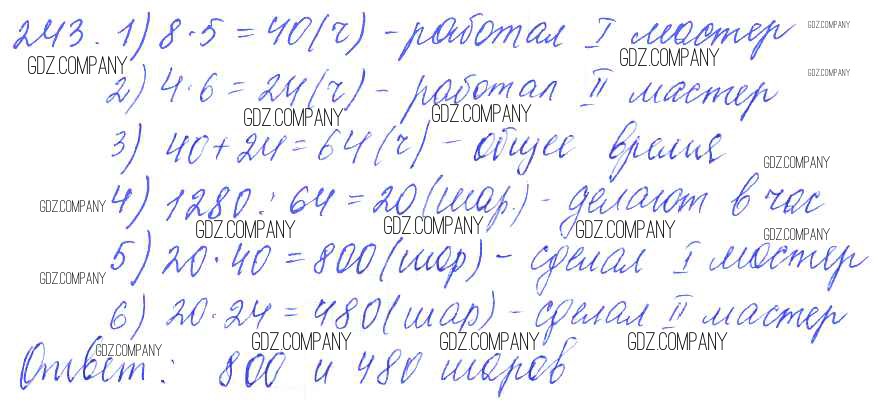 243. 1) 8·5=40(ч) - работал I мастер GDZ.COMPANY
GDZ.COMPANY GDZ.COMPANY GDZ.COMPANY
2) 4·6=24(ч) - работал II мастер
GDZ.COMPANY GDZ.COMPANY
3) 40+24=64(ч) - общее время
GDZ.COMPANY
GDZ.COMPANY 4) 1280:64=20(шар.) - делают в час
GDZ.COMPANY GDZ.COMPANY GDZ.COMPANY GDZ.COMPANY
5) 20·40=800(шар) - сделал I мастер
GDZ.COMPANY
6) 20·24=480(шар) - сделал II мастер
GDZ.COMPANY GDZ.COMPANY GDZ.COMPANY GDZ.COMPANY
Ответ: 800 и 480 шаров